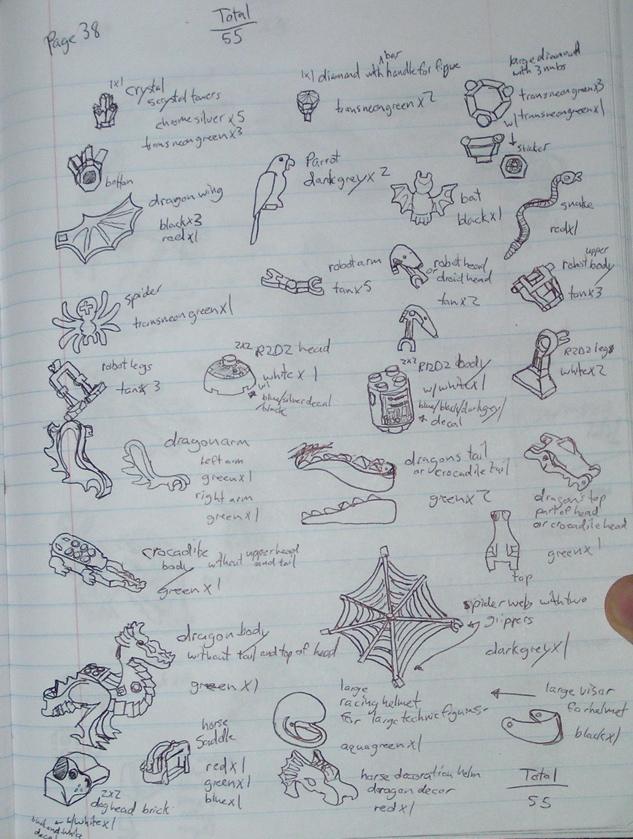 Page 38
Total
55
1x1 crystal
5 crystal towers
chrome silver x5
trans neon green x3
bottom
1x1 diamond with handle for figue
bar
trans neon green x2
large diamond
with 3 nubs
trans neon green x3
w/ trans neon green x1
sticker
dragon wing
black x3
red x1
Parrot
dark grey x2
bat
black x1
snake
red x1
spider
trans neon green x1
robot arm
tan x5
robot head/
or droid head
tan x2
upper
robot body
tan x3
robot legs
tan x3
2x2 R2D2 head
white x1
w/
blue/silver decal
black
2x2 R2D2 body
w/ white x1
blue/black/darkgrey/
decal
R2D2 legs
white x2
dragon arm
left arm
green x1
right arm
green x1
dragons tail
or crocadile tail
green x2
dragons top
part of head
or crocadile head
green x1
top
crocadile
body without upper head and tail
green x1
spider webs with two
grippers
dark grey x1
dragon body
without tail and top of head
green x1
large
racing helmet
for large technic figures
aqua green x1
large visor
for helmet
black x1
horse
saddle
red x1
green x1
blue x1
2x2
dog head brick
w/ white x1
horse decoration helm
daragon decor
red x1
Total
55